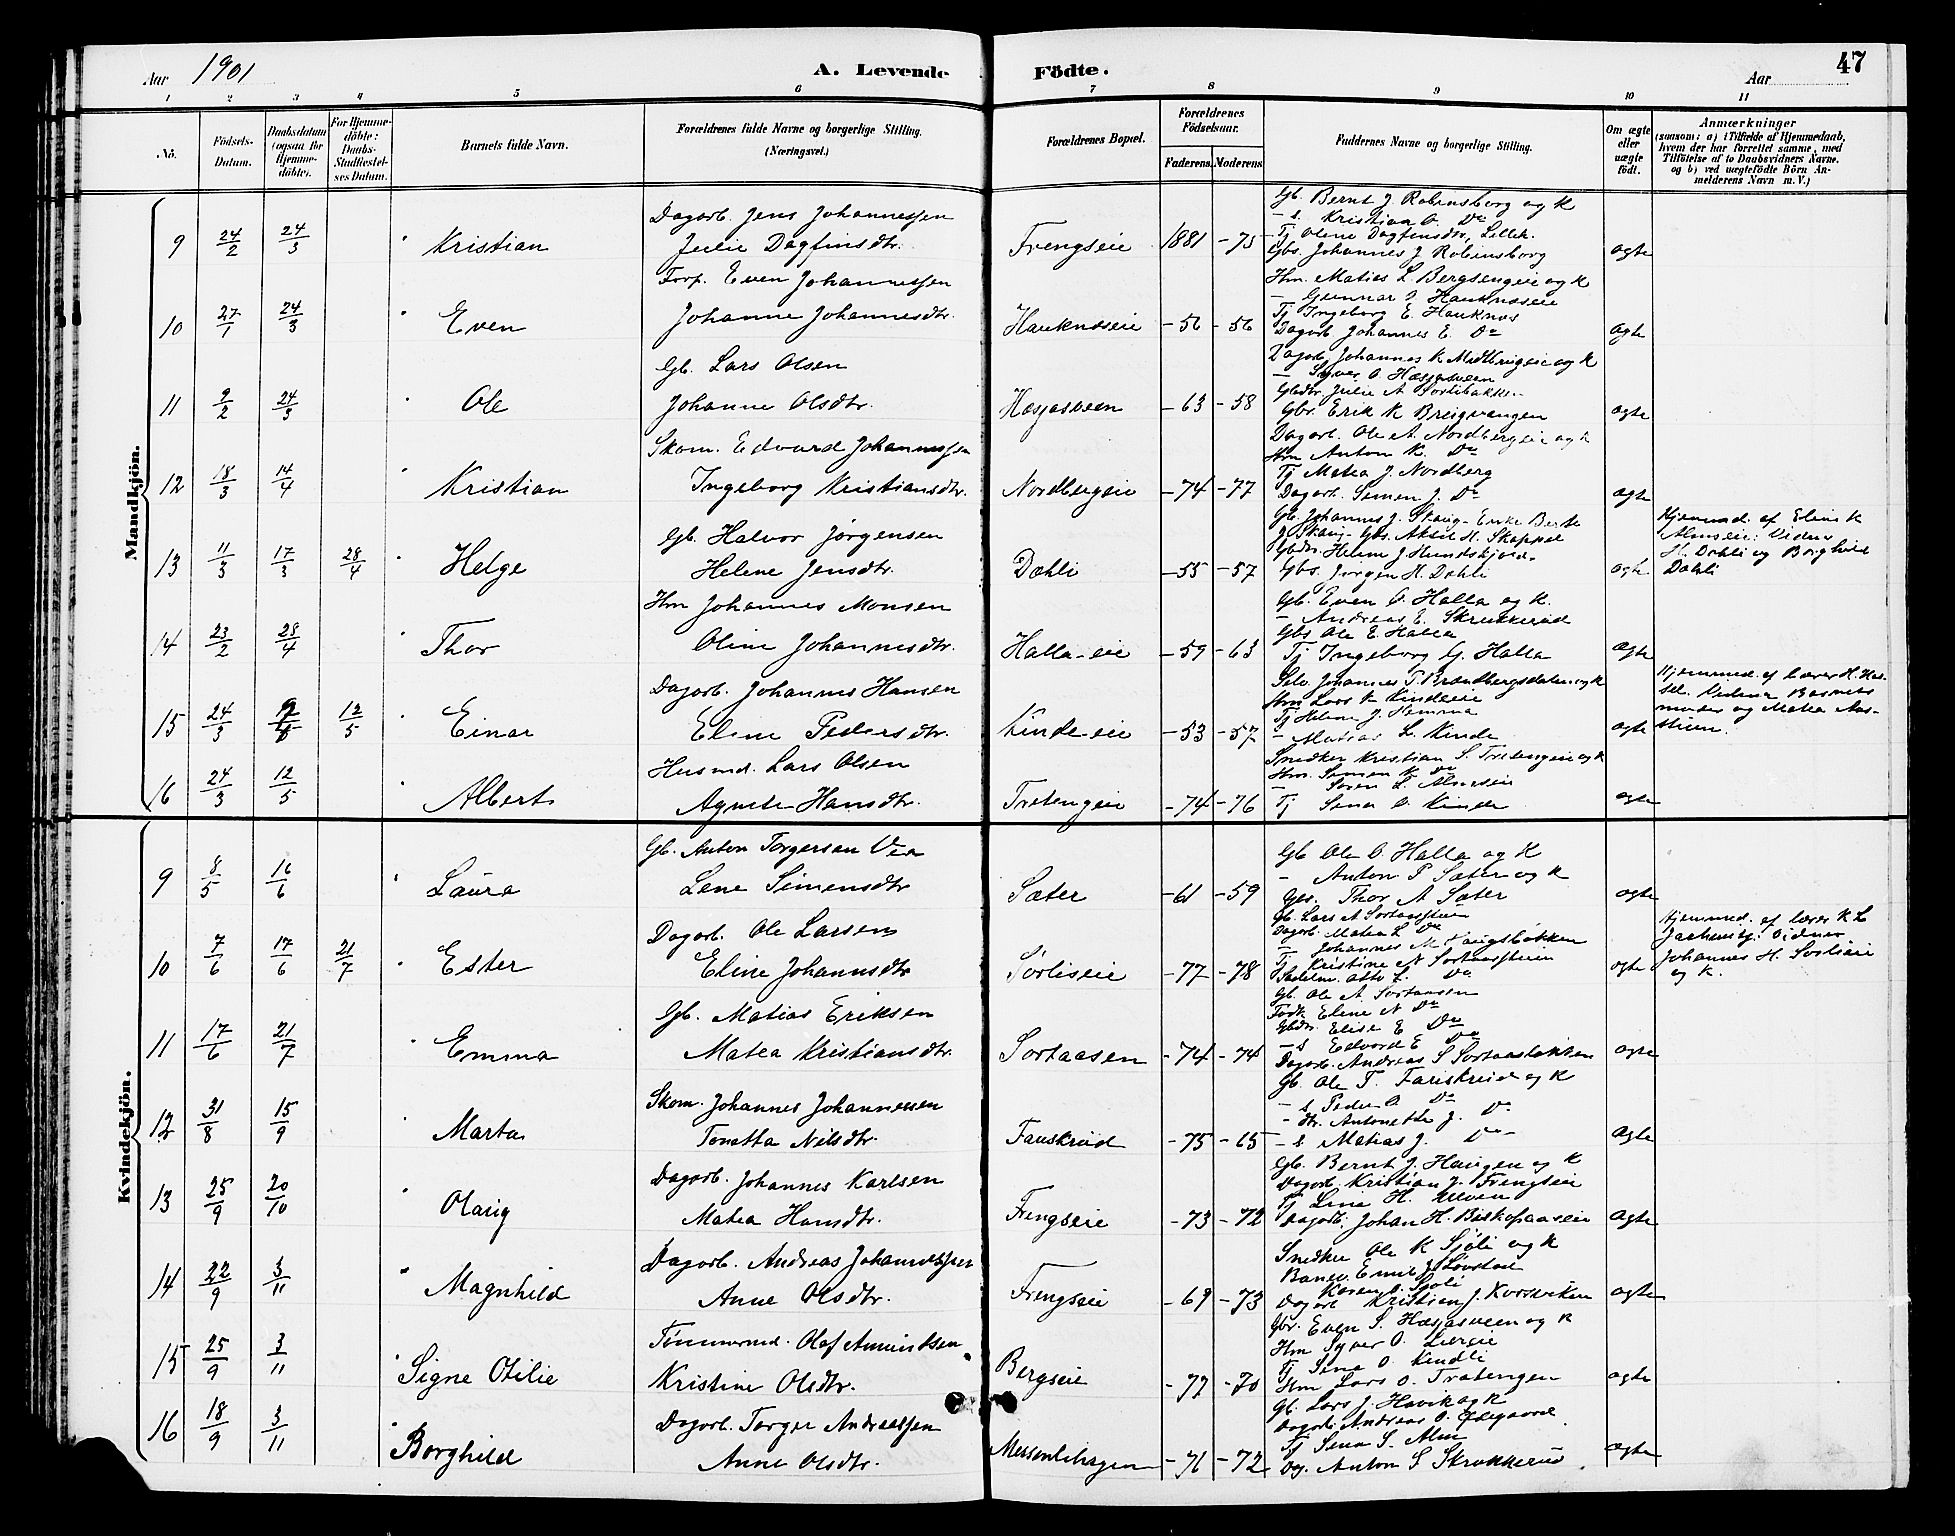 Aar 1901
A. Levende Födte.
Aar
47
1 2 3 4 5 6 7 8 9 10 11
No.
Födsels-Datum.
Daabsdatum (ogsaa for Hjemme-döbte).
For Hjemme-döbte: Daabs-Stadfæstel-ses Datum.
Barnets fulde Navn.
Forældrenes fulde Navne og borgerlige Stilling. (Næringsvei.)
Forældrenes Bopæl.
Forældrenes Födselsaar.
Faderens. Moderens.
Faddernes Navne og borgerlige Stilling.
Om ægte eller uægte födt.
Anmærkninger (saasom: a) i Tilfælde af Hjemmedaab, hvem der har forrettet samme, med Tilföielse af to Daabsvidners Navne. og b) ved uægtefödte Börn An-melderens Navn m. V.)
Mandkjön.
9 24/2 24/3 Kristian
Dagarb. Jens Johannessen
Julie Dagfinsdtr.
Frengseie 1881 -75
Gb. Bernt J. Robensborg og K
- s. Kristian O. Do
Tj Oline Dagfinsdtr, Lilleh.
Gbs. Johannes J Robensborg
ægte
10 27/1 24/3 Even
Forp. Even Johannessen
Johanne Johannesdtr.
Hauknæseie -56 -56
Hm. Matias L Bergsengeie og K
- Gunnar O Hauknæseie
Tj Ingeborg E. Hauknæs
Dagarb Johannes E. Do
ægte
11 9/2 24/3 Ole
Gb. Lars Olsen
Johanne Olsdtr.
Hæsjasveen -63 -58
Dagarb Johannes K. Midtbrugeie og K
- Syver O Hæsjasveen
Gbdtr Julie A Sortibakken
Gbs. Erik K Breigvangen
ægte
12 18/3 14/4 Kristian
Skom. Edvard Johannessen
Ingeborg Kristiansdtr.
Nordbergeie -74 -77
Dagarb. Ole A. Nordbergeie og K
Hm Anton K. Do
Tj Matea J. Nordberg
Dagarb. Simen J. Do
ægte
13 11/3 17/3 28/4 Helge
Gb. Halvor Jörgensen
Helene Jensdtr.
Dæhli -55 -57
Gb. Johannes J. Skaug - Enke Berte
J. Skaug - Gbs. Aksel H. Skappel
Gbdtr. Helene J. Hundskjord.
Gbs. Jörgen H. Dæhli
ægte
Hjemmed. af Eline K
Almseie: Vidner
H. Dæhli og Borghild
Dæhli
14 23/2 28/4 Thor
Hm Johannes Monsen
Oline Johannesdtr.
Halla-eie -59 -63
Gb. Even O. Halla og K.
- Andreas E. Skrukkerud
Gbs Ole E Halla
Tj Ingeborg G. Halla
ægte
15 24/3 12/5 Einar
Dagarb. Johannes Hansen
Eline Pedersdtr.
Kinde-eie -53 -57
Selv. Johannes T. Brændbergsdalen og K
Hm Lars K Kindeeie
Tj Helene J. Hemma
- Matias L. Kinde
ægte
Hjemmed. af lærer H. Has-
Vidner
og Matea
16 24/3 12/5 Albert
Husmd. Lars Olsen
Agnete Hansdtr.
Tretengeie -74 -76
Snedker Kristian S. Tretengeie og K
Hm. Simen K Do
- Soren L. Almseie
Tj Sina O. Kinde
ægte
Kvindekjön.
9 8/5 16/6 Laura
Gb. Anton Torgersen Vea
Lene Simensdtr
Sæter -61 -59
Gb Ole O. Halla og K
- Anton P Sæter og K
Gbs. Thor A Sæter
ægte
10 7/6 17/6 21/7 Ester
Dagarb. Ole Larsen
Eline Johannsdtr
Sörliseie -77 -78
Gb. Lars A Sortaasstuen
Dagarb. Matea L Do
- Johannes M Haugsbakken
Tj Kristine N Sortaasstuen
Sadelm. Otto L. Do
ægte
Hjemmed. af lærer K L
Vidner
Johannes H. Sörliseie
og K.
11 17/6 21/7 Emma
Gb. Matias Eriksen
Matea Kristiansdtr.
Sortaasen -74 -74
Gb. Ole A. Sortaasen
Födk Elene N Do
Gbdtr. Elise E Do
- s Edvard E Do
Dagarb. Andreas S Sortaasbakken
ægte
12 31/8 15/9 Marta
Skom. Johannes Johannessen
Tonetta Nilsdtr.
Fauskrud -75 -65
Gb. Ole T. Fauskrud og K
- s Peder O Do
- dtr. Antonette J. Do
- s Matias J. Do
ægte
13 25/9 20/10 Olaug
Dagarb. Johannes Karlsen
Matea Hansdtr.
Frengseie -73 -72
Gb. Bernt J. Haugen og K
Dagarb. Kristian J. Frengseie
Tj Lina H. Kleven
Dagarb. Johan H. Biskopaaseie
ægte
14 22/9 3/11 Magnhild
Dagarb. Andreas Johannessen
Anne Olsdtr.
Frengseie -69 -73
Snedker Ole K Sjöli og K
Emil J. Lövstad
Karen Sjöli
Dagarb Kristian J. Korsviken
ægte
15 25/9 3/11 Signe Otilie
Tömmermd. Olaf Amundsen
Kristine Olsdtr.
Bergseie -77 -70
Gbs. Even S. Hæsjasveen og K
Hm Syver O. Liereie
Tj Sina O. Kindli
Hm Lars O. Tratengen
ægte
16 18/9 3/11 Borghild
Dagarb. Torger Andreassen
Anne Olsdtr.
Messenlihagen -71 -72
Gb. Lars J. Havik og K
Dagarb. Andreas O. Ödegaard
Tj Sena S. Alm
Dag. Anton S Skrukkerud
ægte